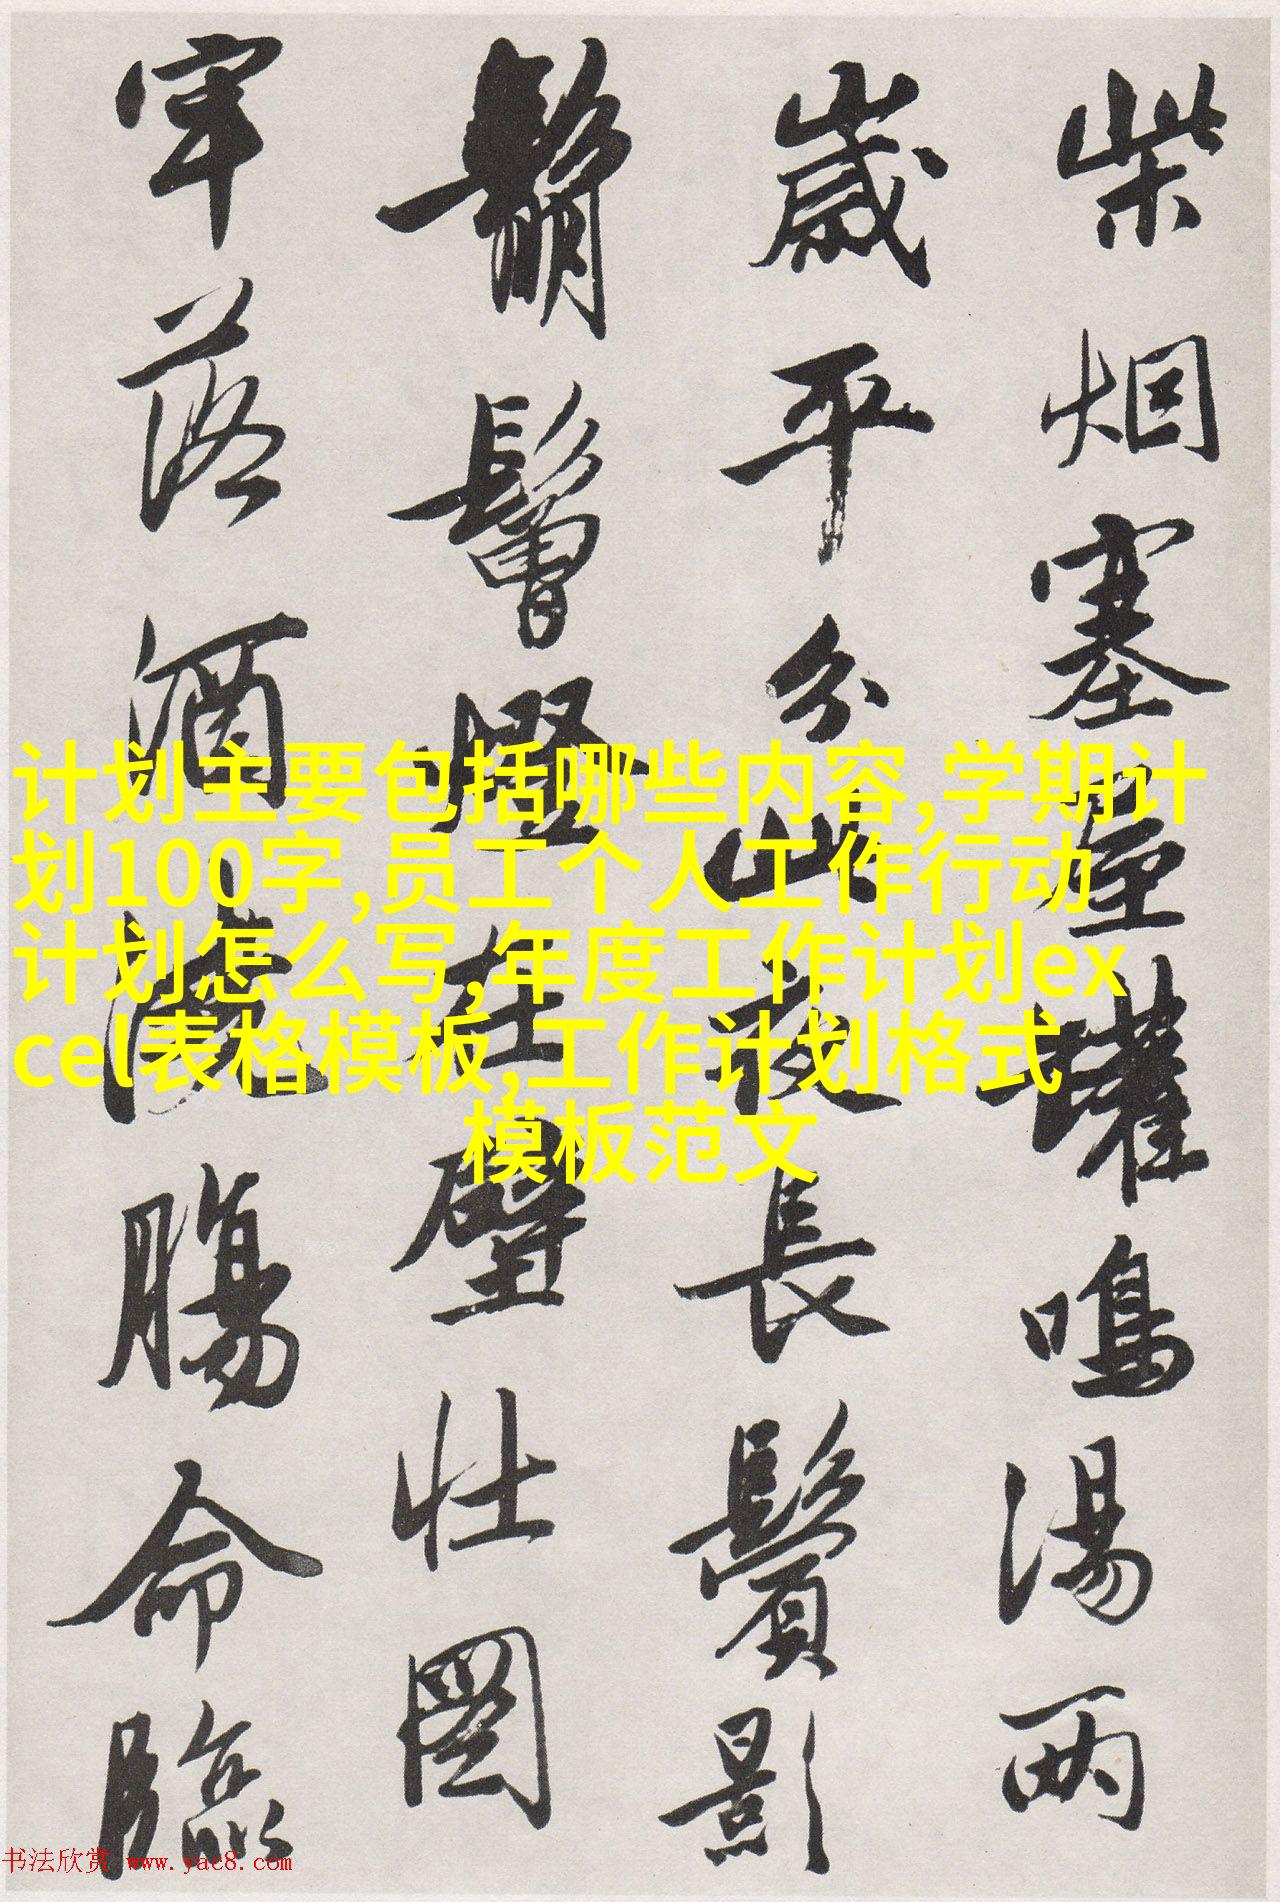 柴烟塞屋罐鳴湯兩
歲平分此夜長鬢影
鬅鬙燈在壁壮圖
牢落酒澆腸命臨
计划主要包括哪些内容,学期计
划100字,员工个人工作行动
计划怎么写,年度工作计划ex
cel表格模板,工作计划格式
模板范文
书法欣赏 www.yac8.com